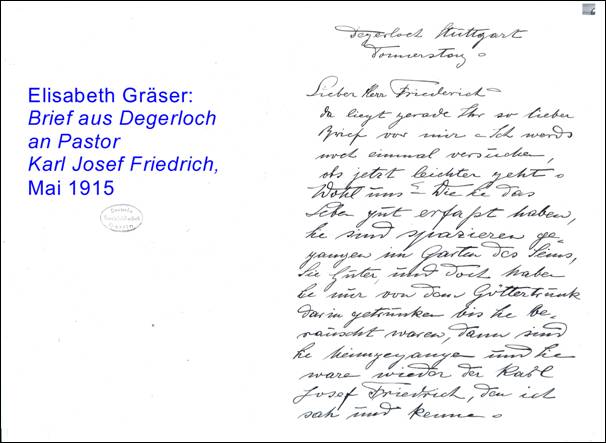 Elisabeth Gräser:
Brief aus Degerloch
an Pastor
Karl Josef Friedrich,
Mai 1915
Degerloch Stuttgart
Donnerstag.
Lieber Herr Friederich.
da liegt gerade Ihr so lieber
Brief vor mir. Ich werds
noch einmal versuchen,
obs jetzt leichter geht.
Wohl uns Die Sie das
Leben gut erfaßt haben,
Sie sind spazieren ge-
gangen im Garten des Seins,
Sie Guter, und doch haben
Sie nur von dem Göttertrunk
darin getrunken bis Sie be-
rauscht waren, dann sind
Sie heimgegangen und Sie
ware wieder der Karl
Josef Friedrich, den ich
sah und kenne.